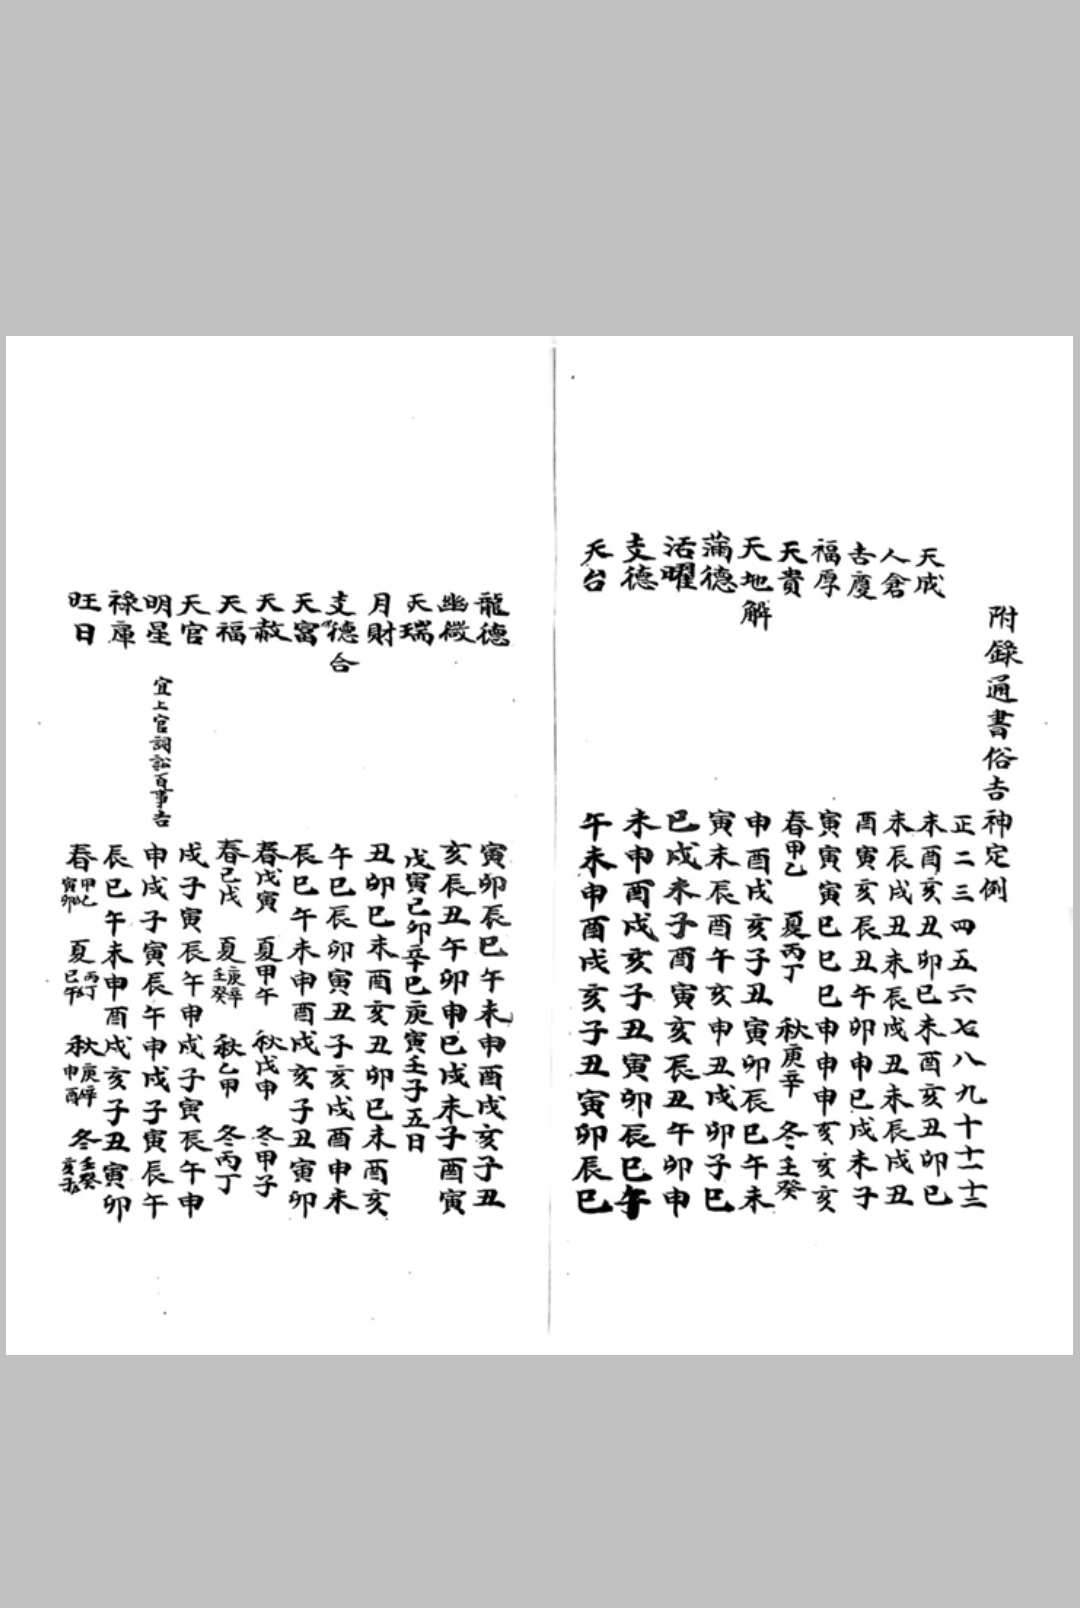 附錄通書俗吉神定例
正二三四五六七八九十十一十二
天成 未酉亥丑卯巳未酉亥丑卯巳
人倉 未辰戌丑未辰戌丑未辰戌丑
吉慶 酉寅亥辰丑午卯申巳戌未子
福厚 寅寅寅巳巳巳申申申亥亥亥
天貴 春甲乙 夏丙丁 秋庚辛 冬壬癸
天地解 申酉戌亥子丑寅卯辰巳午未
蒲德 寅未辰酉午亥申丑戌卯子巳
活曜 巳戌未子酉寅亥辰丑午卯申
支德 未申酉戌亥子丑寅卯辰巳午
天台 午未申酉戌亥子丑寅卯辰巳
龍德 寅卯辰巳午未申酉戌亥子丑
幽微 亥辰丑午卯申巳戌未子酉寅
天瑞 戊寅己卯辛巳庚寅壬子五日
月財 丑卯巳未酉亥丑卯巳未酉亥
支德合 午巳辰卯寅丑子亥戌酉申未
天富 辰巳午未申酉戌亥子丑寅卯
天赦 春戊寅 夏甲午 秋戊申 冬甲子
天福 春己戊 夏庚辛壬癸 秋乙甲 冬丙丁
天官 戌子寅辰午申戌子寅辰午申
明星 宜上官詞訟百事吉 申戌子寅辰午申戌子寅辰午
祿庫 辰巳午未申酉戌亥子丑寅卯
旺日 春甲乙寅卯 夏丙丁巳午 秋庚辛申酉 冬壬癸亥子